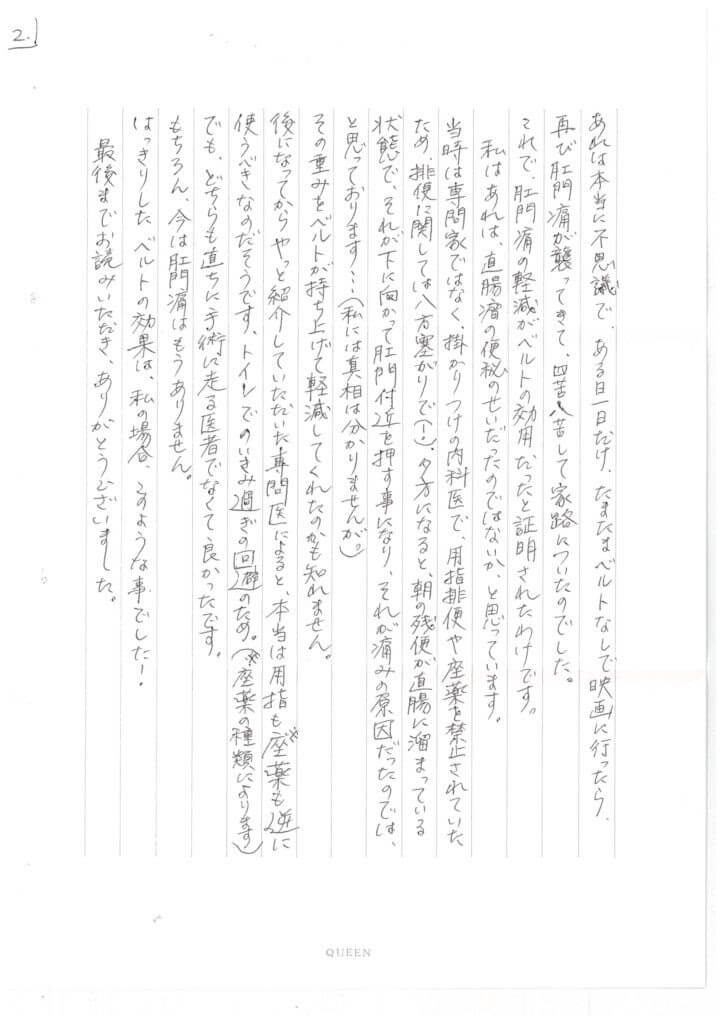 2.
あれは本当に不思議で、ある日一日だけ、たまたまベルトなしで映画に行ったら、
再び肛門痛が襲ってきて、四苦八苦して家路についたのでした。
これで、肛門痛の軽減がベルトの効用だったと証明されたわけです。
私はあれは、直腸瘤の便秘のせいだったのではないか、と思っています。
当時は専門家ではなく、掛かりつけの内科医で、用指排便や座薬を禁止されていた
ため、排便に関しては八方塞がりで(！)、夕方になると、朝の残便が直腸に溜まっている
状態で、それが下に向かって肛門付近を押す事になり、それが痛みの原因だったのでは、
と思っております…(私には真相は分かりませんが。)
その重みをベルトが持ち上げて軽減してくれたのかも知れません。
後になってからやっと紹介していただいた専門医によると、本当は用指も座薬※も逆に
使うべきなのだそうです、トイレでのいきみ過ぎの回避のため。(※座薬の種類によります)
でも、どちらも直ちに手術に走る医者でなくて良かったです。
もちろん、今は肛門痛はもうありません。
はっきりしたベルトの効果は、私の場合、このような事でした！
最後までお読みいただき、ありがとうございました。
QUEEN